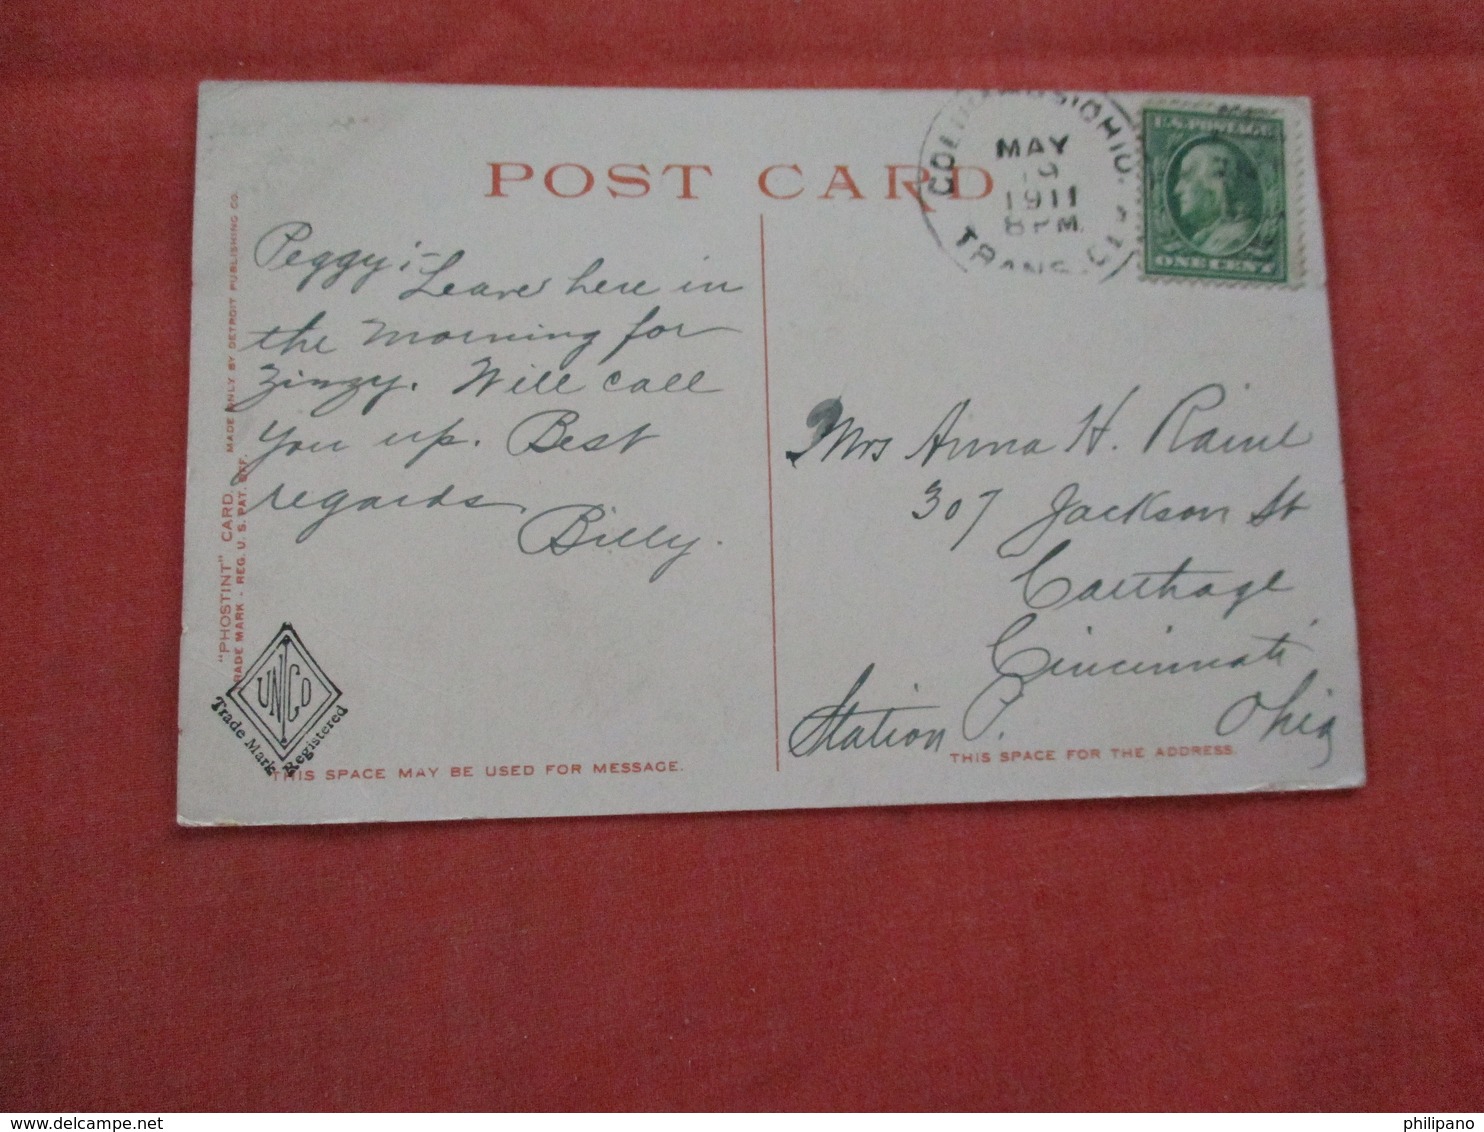 POST CARD
COLUMBUS, OHIO.
MAY
19
1911
8 PM
TRANS. CL
U.S. POSTAGE
ONE CENT
Peggy:-
Leave here in
the morning for
Zinzy. Will call
you up. Best
regards
Billy.
Mrs Anna H. Raine
307 Jackson St
Carthage
Cincinnati
Station P. Ohio
"PHOSTINT" CARD MADE ONLY BY DETROIT PUBLISHING CO.
TRADE MARK - REG. U. S. PAT. OFF.
UNCO
Trade Mark Registered
THIS SPACE MAY BE USED FOR MESSAGE.
THIS SPACE FOR THE ADDRESS.
philipano